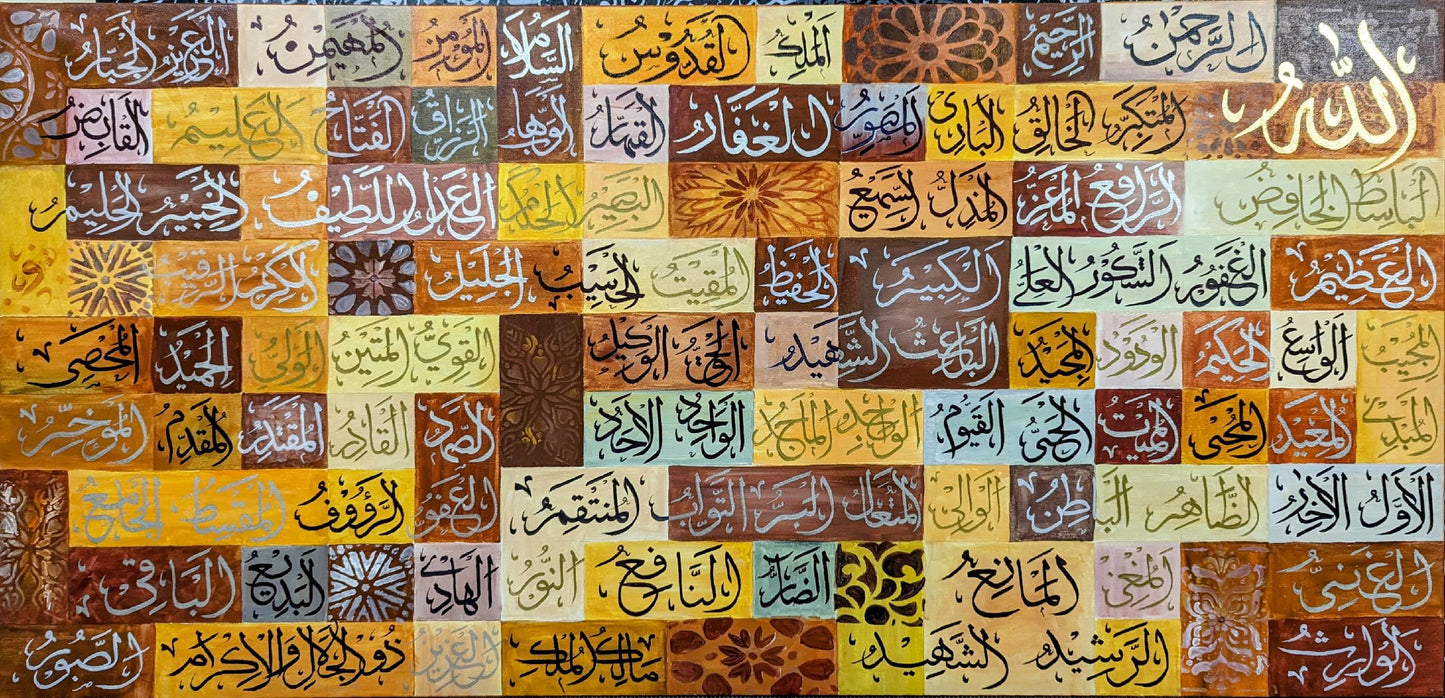 الله الرَّحمٰنُ الرَّحِيمُ المَلِكُ القُدُّوسُ السَّلَامُ المُؤمِنُ المُهَيمِنُ العَزِيزُ الجَبَّارُ
المُتَكَبِّرُ الخَالِقُ البَارِئُ المُصَوِّرُ الغَفَّارُ القَهَّارُ الوَهَّابُ الرَّزَّاقُ الفَتَّاحُ العَلِيمُ القَابِضُ
البَاسِطُ الخَافِضُ الرَّافِعُ المُعِزُّ المُذِلُّ السَّمِيعُ البَصِيرُ الحَكَمُ العَدلُ اللَّطِيفُ الخَبِيرُ الحَلِيمُ
العَظِيمُ الغَفُورُ الشَّكُورُ العَلِيُّ الكَبِيرُ الحَفِيظُ المُقِيتُ الحَسِيبُ الجَلِيلُ الكَرِيمُ الرَّقِيبُ
المُجِيبُ الوَاسِعُ الحَكِيمُ الوَدُودُ المَجِيدُ البَاعِثُ الشَّهِيدُ الحَقُّ الوَكِيلُ القَوِيُّ المَتِينُ الوَلِيُّ الحَمِيدُ المُحصِى
المُبدِئُ المُعِيدُ المُحيِى المُمِيتُ الحَيُّ القَيُّومُ الوَاجِدُ المَاجِدُ الوَاحِدُ الاَحَدُ الصَّمَدُ القَادِرُ المُقتَدِرُ المُقَدِّمُ المُؤَخِّرُ
الأَوَّلُ الآخِرُ الظَّاهِرُ البَاطِنُ الوَالِى المُتَعَالُ البَرُّ التَّوَّابُ المُنتَقِمُ العَفُوُّ الرَّؤُوفُ المُقسِطُ الجَامِعُ
الغَنِىُّ المُغنِى المَانِعُ الضَّارُّ النَّافِعُ النُّورُ الهَادِى البَدِيعُ البَاقِى
الوَارِثُ الرَّشِيدُ الشَّهِيدُ مَالِكُ المُلكِ العَزِيزُ ذُو الجَلَالِ وَالاِكرَام الصَّبُورُ